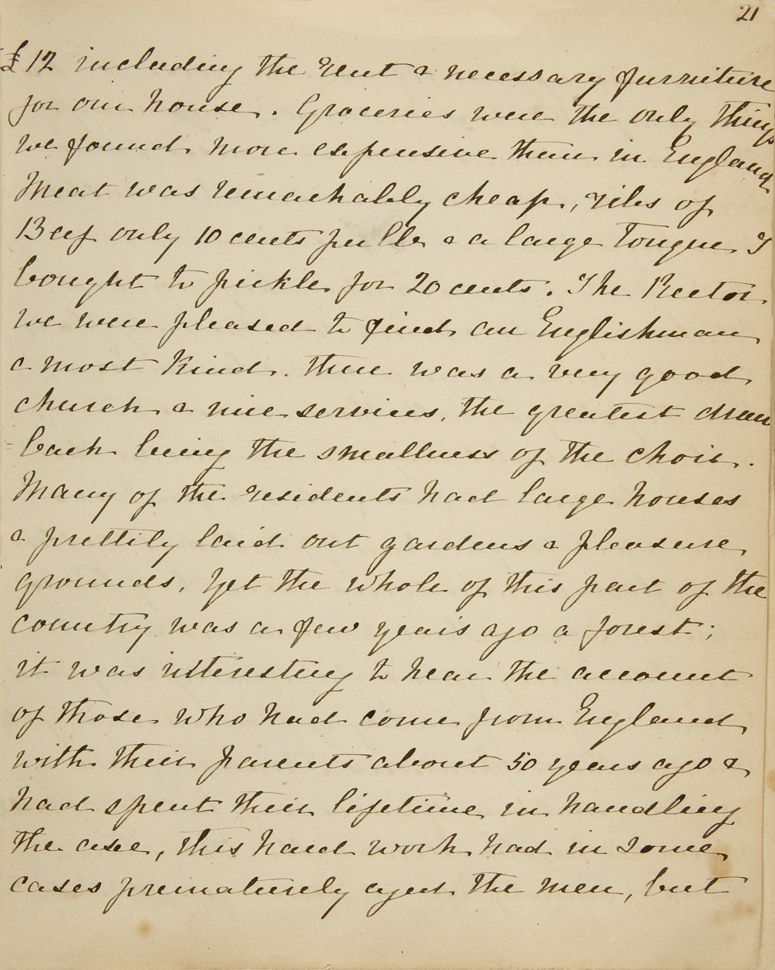 21
£12 including the rent & necessary furniture
for our house. Groceries were the only things
we found more expensive than in England
Meat was remarkably cheap, ribs of
Beef only 10 cents per lb & a large Tongue I
bought to pickle for 20 cents. The Rector
we were pleased to find an Englishman
& most kind. there was a very good
church & nice services, the greatest draw
= back being the smallness of the choir.
Many of the residents had large houses
& prettily laid out gardens & pleasure
grounds. Yet the whole of this part of the
country was a few years ago a forest;
it was interesting to hear the account
of those who had come from England
with their parents about 50 years ago &
had spent their lifetime in handling
the axe, this hard work had in some
cases prematurely aged the men, but